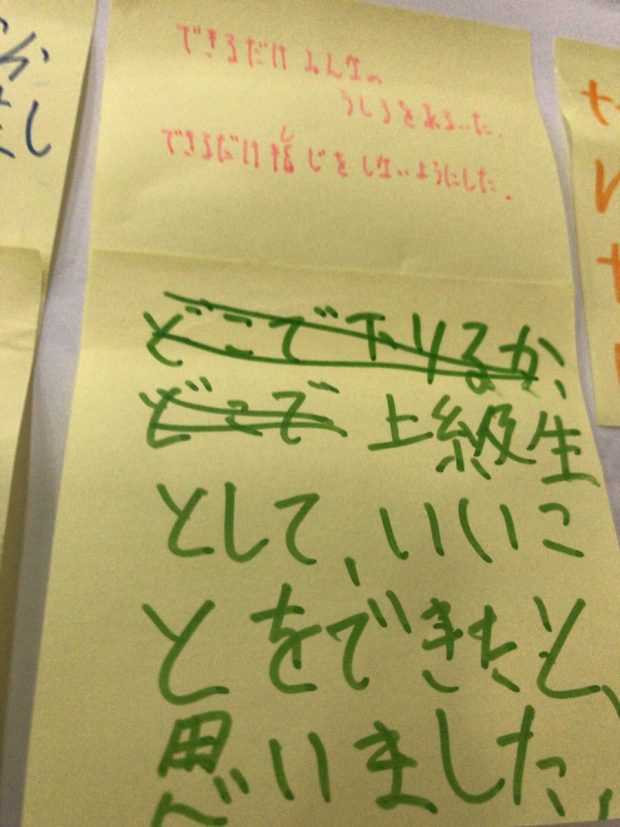 できるだけみんなの
うしろをあるいた。
できるだけ指じをしないようにした。
し
どこで下りるか、
どこで 上級生
として、いいこ
とをできたと、
思いました。